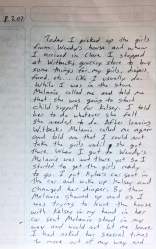 8.3.02
Today I picked up the girls
from Wendy's house and when
I arrived in Clare I stopped
at Witbecks grocery store to buy
some things for my girls, diapers,
food, etc... like I usually do.
While I was in the store
Melanie called me and told me
that she was going to start
child support for Kelsey. I told
her to do whatever she felt
she needed to do. After leaving
Witbecks Melanie called me again
and told me that I could never
take the girls until she got
there. When I got to Wendy's
Melanie was not there yet so I
started to get the girls ready
to go. I put Kyla's car seat in
the car and woke up Kelsey and
changed her diaper. By then
Melanie showed up and as I
was trying to leave the house
with Kelsey in my hand in her
car seat Melanie stood in my
way and would not let me leave.
I had asked her several times
to move out of my way and